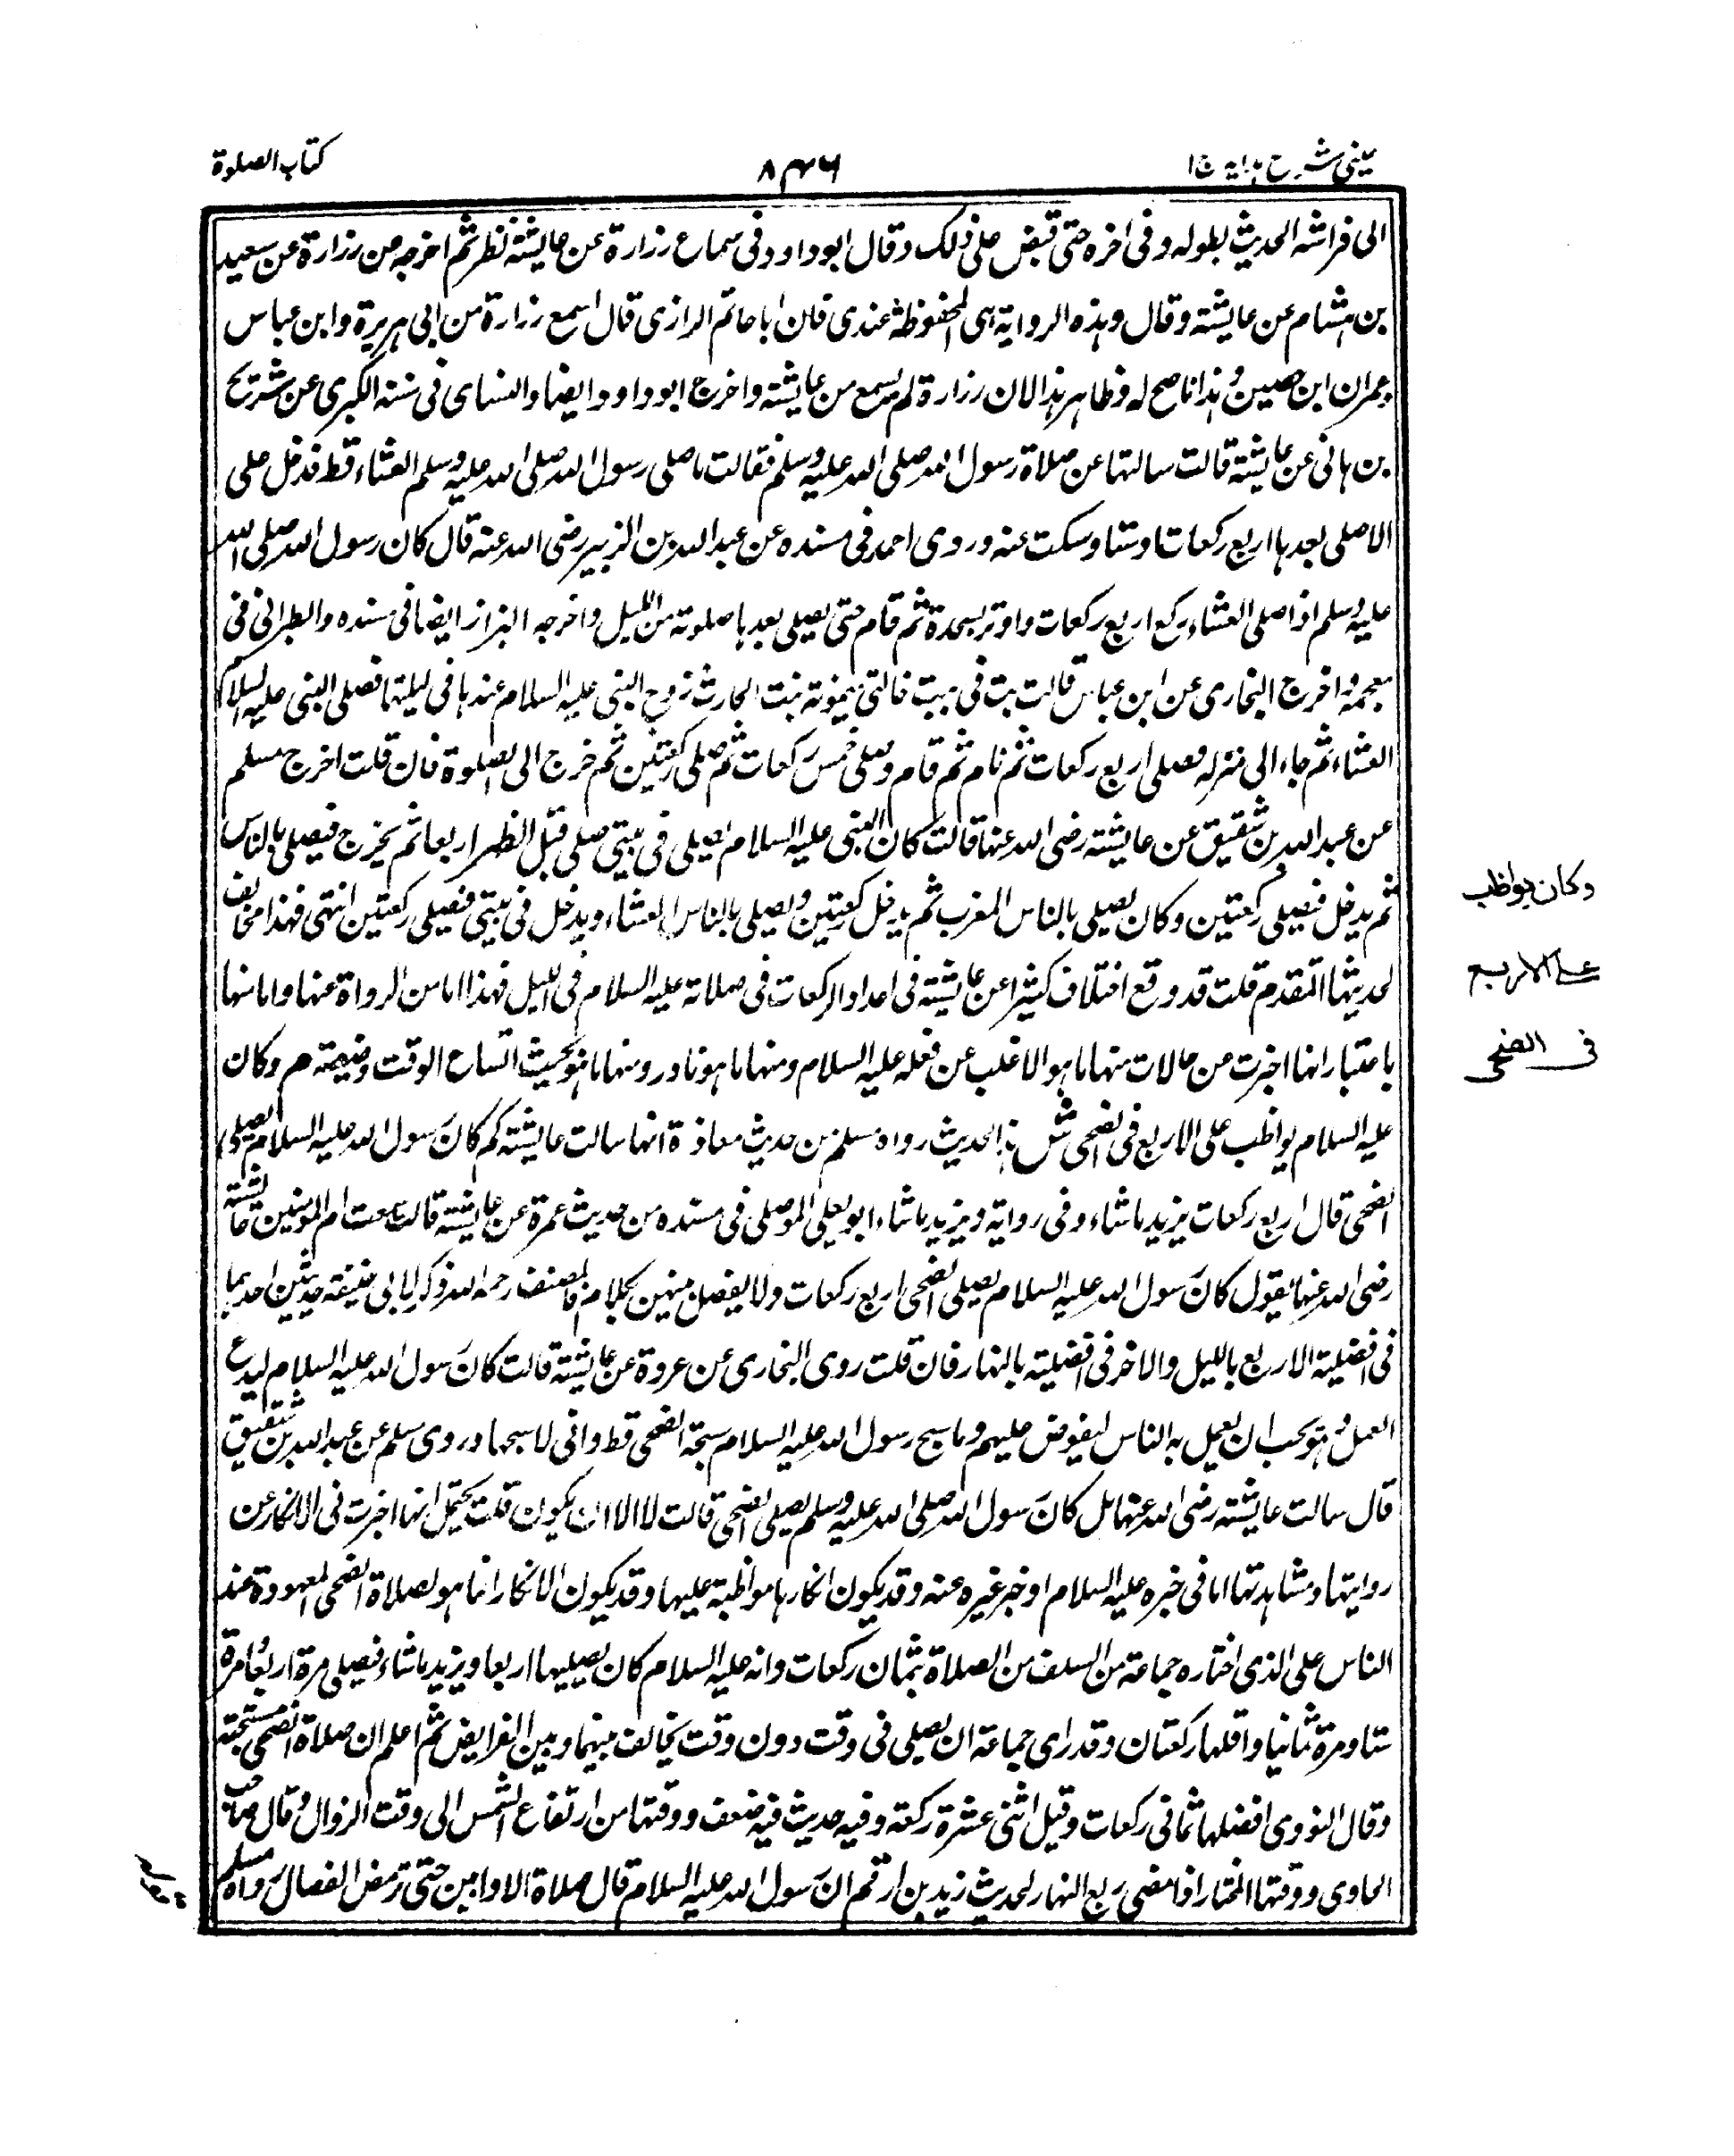 عینی شرح ہدایہ ج ۱
۸۴۶
کتاب الصلوة
الی فراشه الحدیث بطوله وفی اخره حتی قبض علی ذلک وقال ابو داود فی سماع زرارة عن عایشة نظر ثم اخرجه من زرارة عن سعید
بن هشام عن عایشة وقال وہذہ الروایة ہی المحفوظة عندی فان ابا حاتم الرازی قال اسمع زرارة من ابی ہریرة وابن عباس
وعمران ابن حصین وہذا ما صح له وظاہر ہذا الان زرارة لم یسمع من عایشة واخرج ابو داود ایضا والنسای فی سننه الکبری عن شریح
بن ہانی عن عایشة قالت سالتها عن صلاة رسول الله صلی الله علیه وسلم فقالت ما صلی رسول الله صلی الله علیه وسلم العشاء قط فدخل علی
الا صلی بعدہا اربع رکعات او ستا وسکت عنه وروی احمد فی مسنده عن عبد الله بن الزبیر رضی الله عنه قال کان رسول الله صلی الله
علیه وسلم اذا صلی العشاء رکع اربع رکعات واوتر بسجدة ثم قام حتی یصلی بعدہا صلوته من اللیل واخرجه البزاز ایضا فی مسنده والطبرانی فی
معجمه واخرج البخاری عن ابن عباس قالت بت فی بیت خالتی میمونة بنت الحارث زوج النبی علیه السلام عندہا فی لیلتها فصلی النبی علیه السلام
العشاء ثم جاء الی منزله فصلی اربع رکعات ثم نام ثم قام وصلی خمس رکعات ثم صلی رکعتین ثم خرج الی الصلوة فان قلت اخرج مسلم
عن عبد الله بن شقیق عن عایشة رضی الله عنها قالت کان النبی علیه السلام یصلی فی بیتی صلی قبل الظهر اربعا ثم یخرج فیصلی بالناس
ثم یدخل فیصلی رکعتین وکان یصلی بالناس المغرب ثم یدخل رکعتین ویصلی بالناس العشاء ویدخل فی بیتی فیصلی رکعتین انتهی فهذا مخالف
لحدیثها المتقدم قلت قد وقع اختلاف کثیرا عن عایشة فی اعداد الرکعات فی صلاته علیه السلام فی اللیل فهذا اما من الرواة عنها واما منها
باعتبار انها اخبرت من حالات منها ما ہو الاغلب عن فعله علیه السلام ومنها ما ہو نادر ومنها ما ہو بحیث اتساع الوقت وضیقه م وکان
علیه السلام یواظب علی الاربع فی الضحی ش ہذا الحدیث رواه مسلم من حدیث معاذة انها سالت عایشة کم کان رسول الله علیه السلام یصلی
الضحی قال اربع رکعات یزید ما شاء وفی روایة ویزید ما شاء ابو یعلی الموصلی فی مسنده من حدیث عمرة عن عایشة قالت سمعت ام المومنین عایشة
رضی الله عنها تقول کان رسول الله علیه السلام یصلی الضحی اربع رکعات ولا یفصل بینهن بکلام فالمصنف رحمه الله ذکر لابی حنیفة حدیثین احدہما
فی افضلیة الاربع باللیل والاخر فی افضلیته بالنهار فان قلت روی البخاری عن عروة عن عایشة قالت کان رسول الله علیه السلام لیدع
العمل وہو یحب ان یعمل به الناس لیفوض علیهم وما سبح رسول الله علیه السلام سبحة الضحی قط وانی لاسبحها وروی مسلم عن عبد الله بن شقیق
قال سالت عایشة رضی الله عنها ہل کان رسول الله صلی الله علیه وسلم یصلی الضحی قالت لا الا ان یکون قلت یحتمل انها اخبرت فی الانکار عن
روایتها ومشاہدتها اما فی خبره علیه السلام او خبر غیره عنه وقد یکون انکارہا مواظبة علیها وقد یکون الانکار انما ہو لصلاة الضحی المعهودة عند
الناس علی الذی اختاره جماعة من السلف من الصلاة بثمان رکعات وانه علیه السلام کان یصلیها اربعا ویزید ما شاء فیصلی مرة اربعا ومرة
ستا ومرة ثمانیا واقلها رکعتان وقد رای جماعة ان یصلی فی وقت دون وقت یخالف بینهما وبین الفرایض ثم اعلم ان صلاة الضحی مستحبة
وقال النووی افضلها ثمانی رکعات وقیل اثنی عشرة رکعة وفیه حدیث فیه ضعف ووقتها من ارتفاع الشمس الی وقت الزوال وقال صاحب
الحاوی ووقتها المختار اذا مضی ربع النهار لحدیث زید بن ارقم ان رسول الله علیه السلام قال صلاة الاوابین حتی ترمض الفصال رواه مسلم
وکان یواظب
علی الاربع
فی الضحی